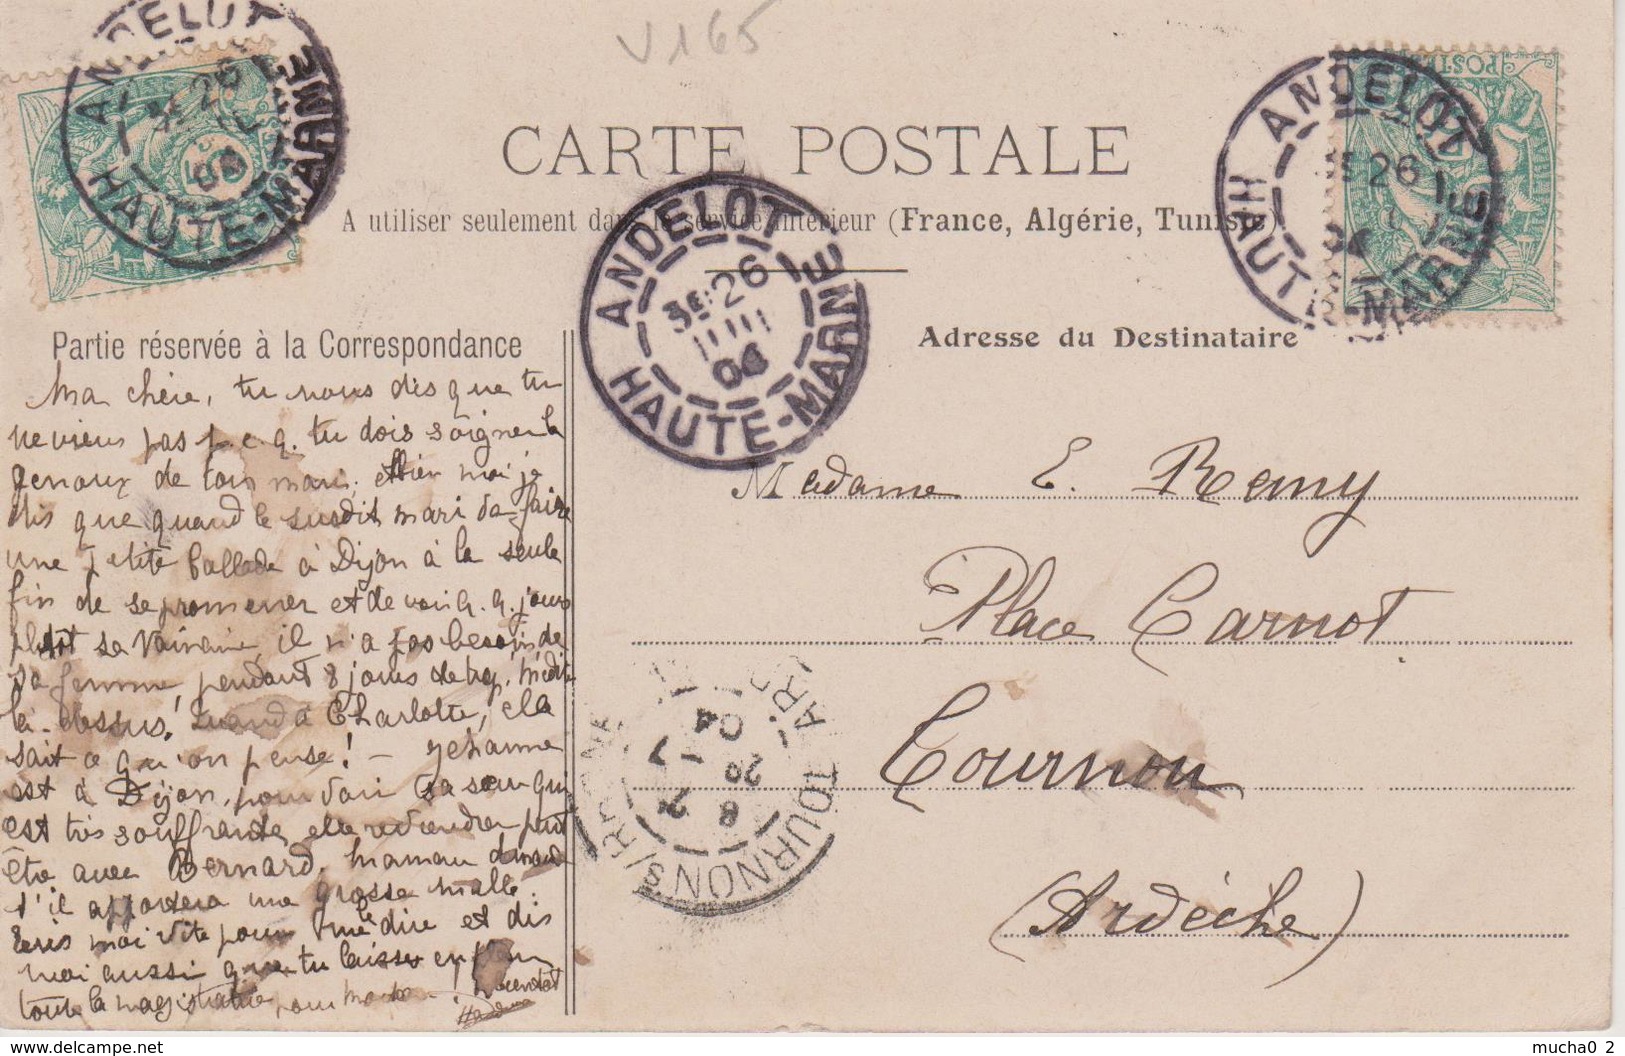 V165
CARTE POSTALE
A utiliser seulement dans le service intérieur (France, Algérie, Tunisie)
ANDELOT
HAUTE-MARNE
3E 26
04
ANDELOT
HAUTE-MARNE
3E 26
ANDELOT
HAUTE-MARNE
26
POSTES
Partie réservée à la Correspondance
Adresse du Destinataire
Ma chère, tu nous dis que tu
ne viens pas p. c. q. tu dois soigner les
genoux de ton mari, et bien moi je
dis que quand le susdit mari va faire
une petite ballade à Dijon à la seule
fin de se promener et de voir q. q. jours
plutôt sa il n'a pas besoin de
sa femme, pendant 8 jours de tps. médite
là-dessus! Quand à Charlotte, ela
sait ce qu'on pense! – Jehanne
est à Dijon, pour voir sa sœur qui
est très souffrante, elle reviendra peut
être avec Bernard. Maman demande
s'il apportera une grosse malle.
Ecris moi vite pour me le dire et dis
moi aussi que tu laisses en plan
toute la magistrature pour
Madame E. Remy
Place Carnot
Tournon
(Ardèche)
TOURNON S/RHONE
ARD
8
2E
20 - 7
04
mucha0_2